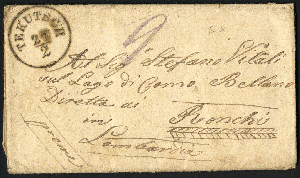 TEKUTSCH
22/2
9
Al Sigr Stefano Vitali
sul Lago di Como, Bellano
Diretta di
Ronchi
in
Lombardia